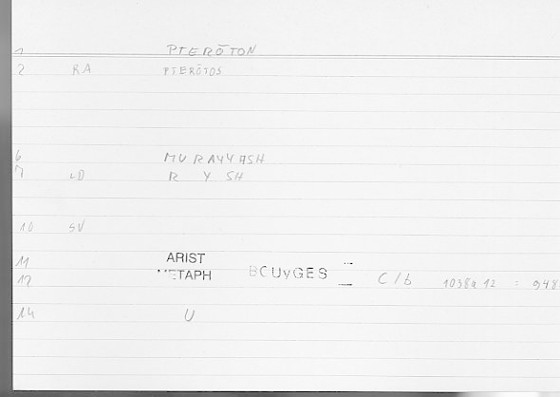 1 PTERŌTON
2 RA PTERŌTOS
6 MURAYYASH
7 LD R Y SH
10 SV
11 ARIST
12 METAPH BOUyGES C/b 1038a12 = 948
14 U